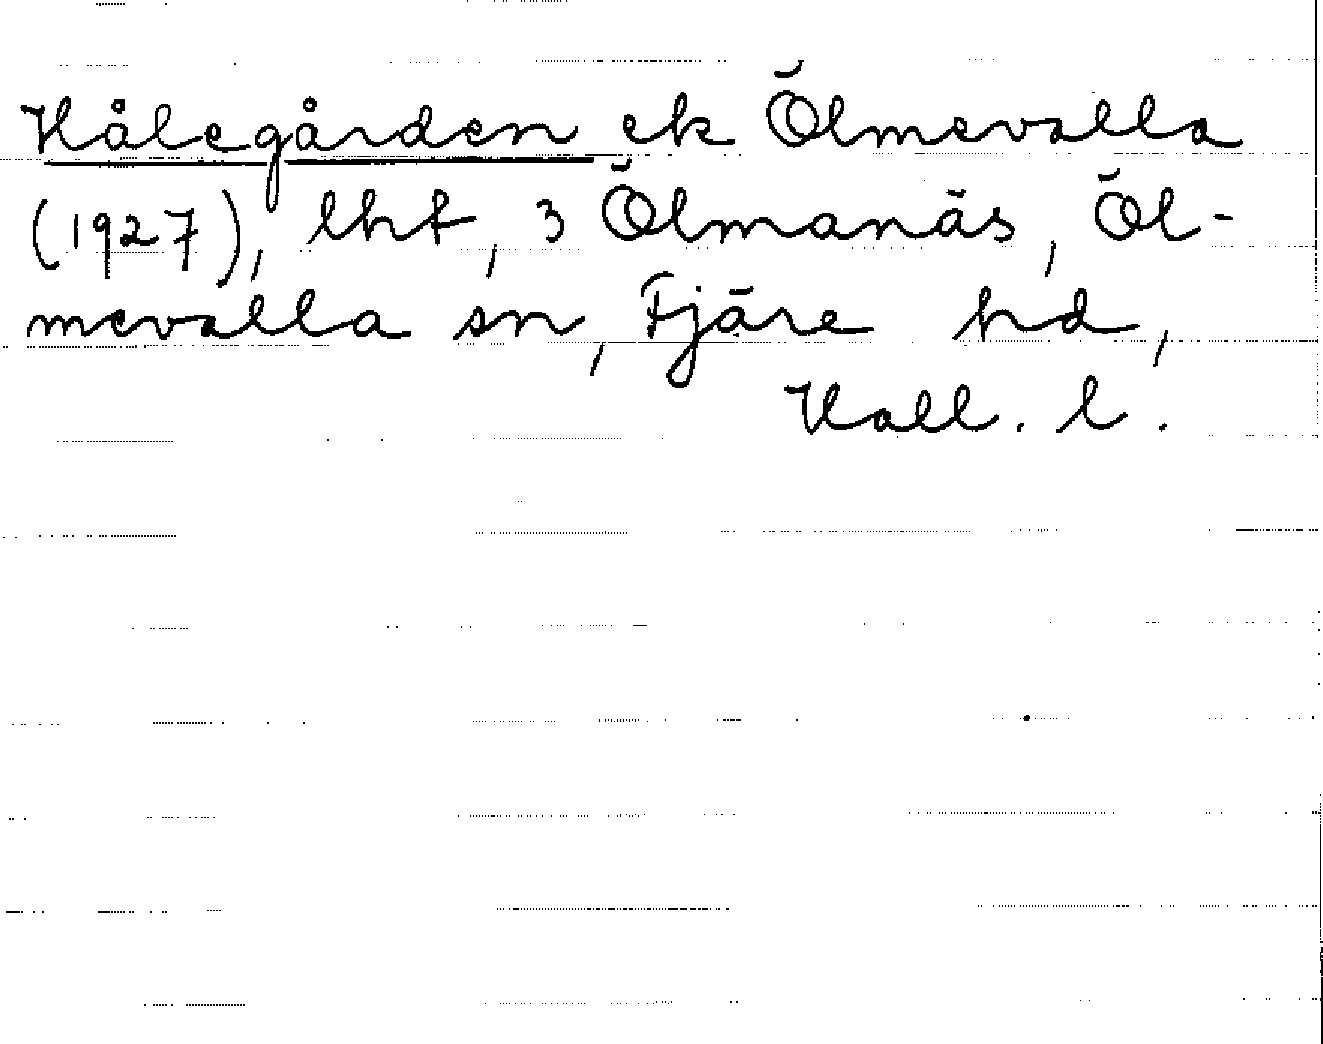 Hålegården ek Ölmevalla
(1927), lht, 3 Ölmanäs, Öl-
mevalla sn, Fjäre hd,
Hall. l.